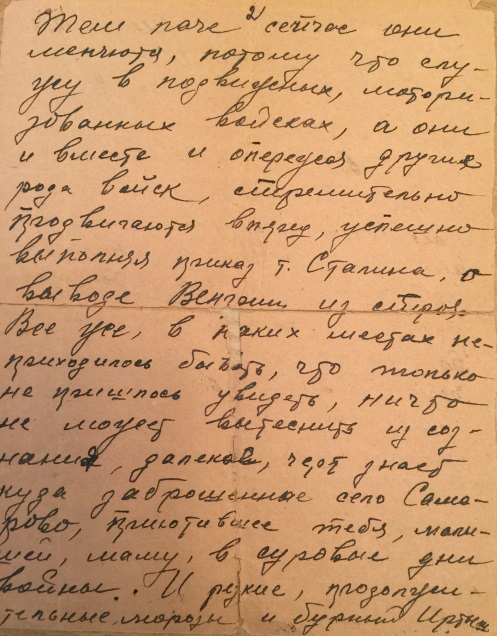 2)
Тем паче сейчас они
меняются, потому что слу-
жу в подвижных, мотори-
зованных войсках, а они
и вместе и опережая другие
рода войск, стремительно
продвигаются вперед, успешно
выполняя приказ т. Сталина, о
выводе Венгрии из строя.
Все же, в каких местах не-
приходилось бывать, что только
не пришлось увидеть, ничто
не может вытеснить из соз-
нания, далекое, черт знает
куда заброшенное село Сама-
рово, приютившее тебя, малы-
шей, маму, в суровые дни
войны. И резкие, продолжи-
тельные морозы и бурный Иртыш